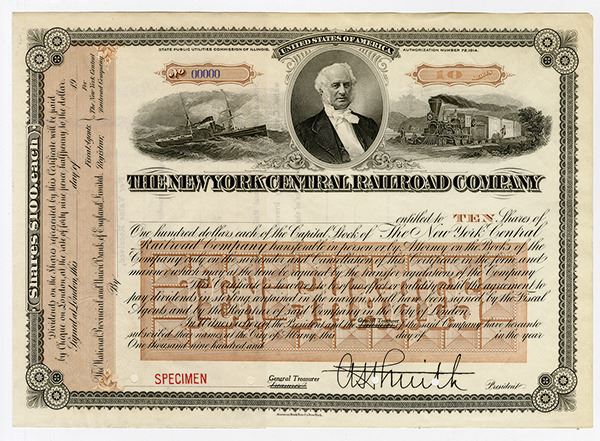 UNITED STATES OF AMERICA
STATE PUBLIC UTILITIES COMMISSION OF ILLINOIS.
AUTHORIZATION NUMBER 72,1914.
No 00000
10
THE NEW YORK CENTRAL RAILROAD COMPANY
entitled to TEN Shares of
One hundred dollars each of the Capital Stock of The New York Central
Railroad Company transferable in person or by Attorney on the Books of the
Company only on the surrender and Cancellation of this certificate in the form and
manner which may at the time be required by the transfer regulations of the Company
agreement to
pay dividends in sterling contained in the margin shall have been signed by the Fiscal
Agents and by the Registrar of said Company in the City of London.
In Witness Whereof the President and the said Company have hereunto
subscribed their names at the City of Albany, this day of in the year
One thousand nine hundred and
TEN SHARES
SPECIMEN
General Treasurer
President
Shares $100 each
Dividends on the Shares represented by this Certificate will be paid
by Cheque on London, at the rate of forty nine pence halfpenny to the dollar.
Signed at London, this day of 19
Fiscal Agents
For
The New York Central
Railroad Company.
The National Provincial and Union Bank of England, Limited. Registrar,
By